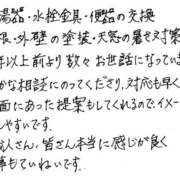 湯器・水栓金具・便器の交換
根・外壁の塗装・天窓の暑さ対策
年以上前より数々お世話になってい
かな相談にのってくださり、対応も早く
面にあった提案もしてくれるのでイメー
しやすいです。
人さん、皆さん本当に感じが良く
事もていねいです。